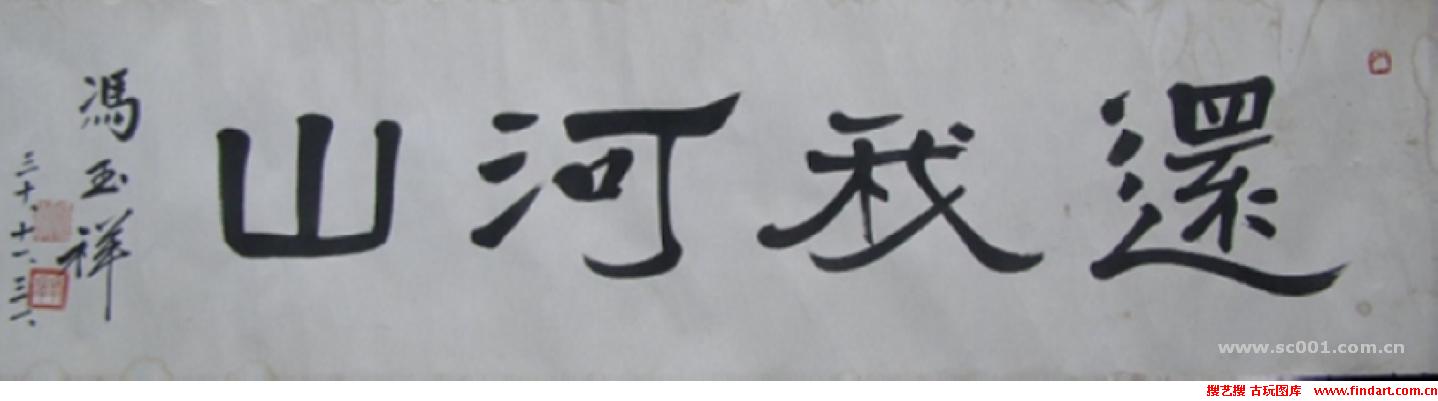 還我河山
馮玉祥
三十、十一、三一、
www.sc001.com.cn
搜艺搜 古玩图库 www.findart.com.cn